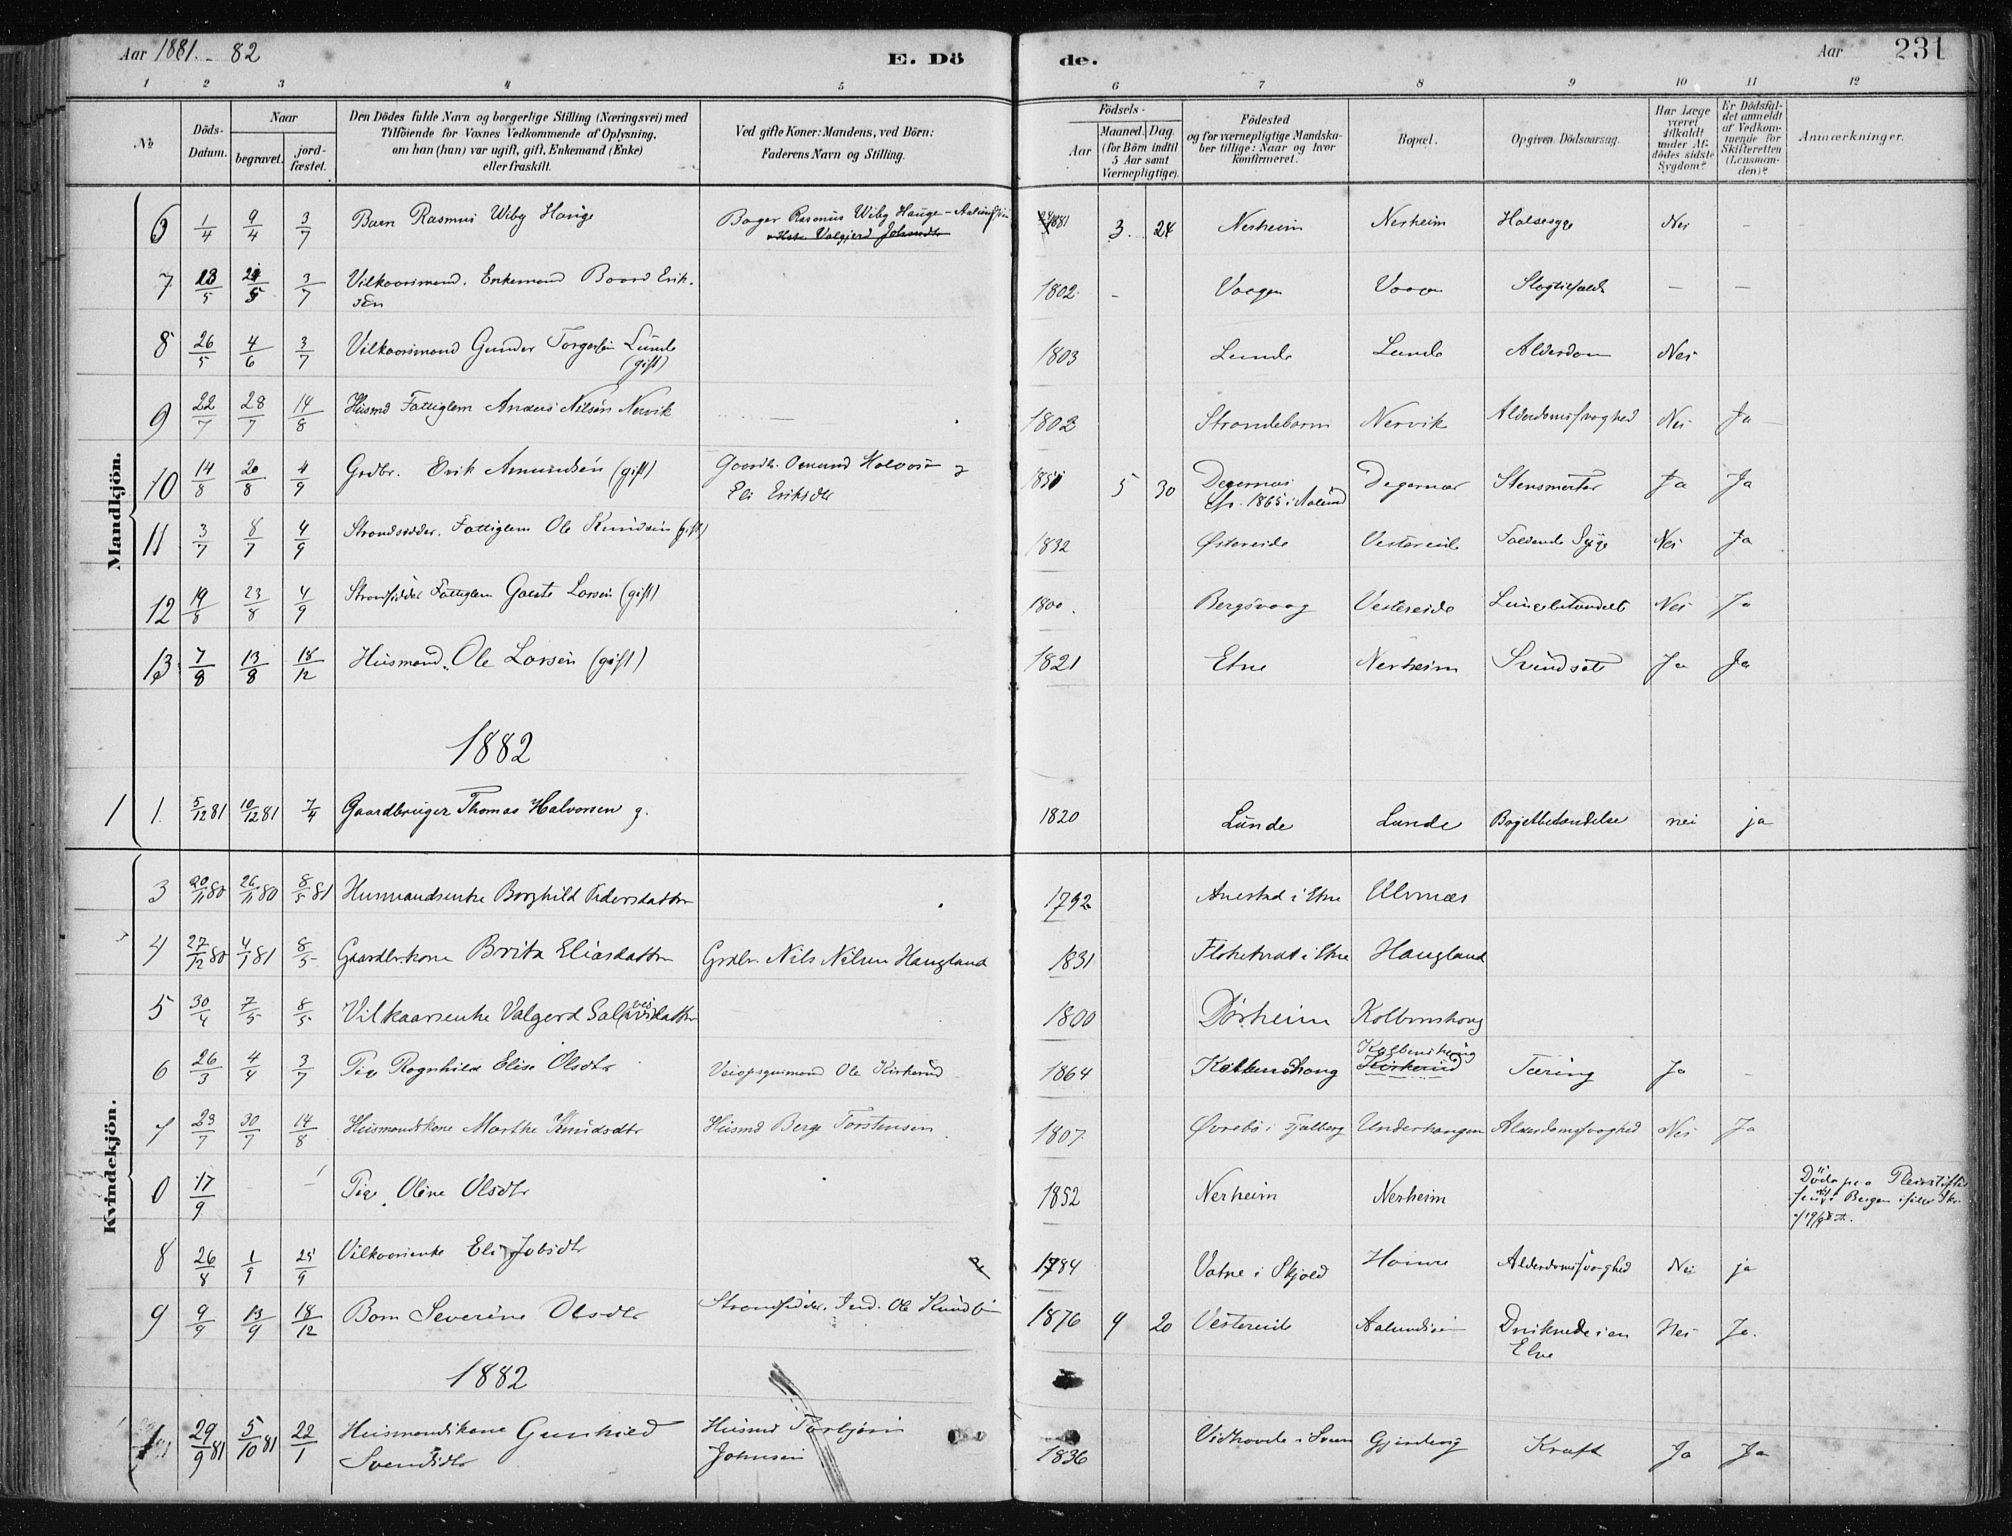 Aar 1881.-82
E. Dö
de.
Aar 231
1 2 3 4 5 6 7 8 9 10 11 12
№
Döds-Datum.
Naar
begravet.
jord-fæstet.
Den Dödes fulde Navn og borgerlige Stilling (Næringsvei) med
Tilföiende for Voxnes Vedkommende af Oplysning,
om han (hun) var ugift, gift, Enkemand (Enke)
eller fraskilt.
Ved gifte Koner: Mandens, ved Börn:
Faderens Navn og Stilling.
Födsels-
Aar
Maaned. Dag.
(for Börn indtil
5 Aar samt
Værnepligtige).
Födested
og for værnepligtige Mandska-
ber tillige: Naar og hvor
konfirmeret.
Bopæl.
Opgiven Dödsaarsag.
Har Læge
været
tilkaldt
under Af-
dödes sidste
Sygdom?
Er Dödsfal-
det anmeldt
af Vedkom-
mende for
Skifteretten
(Lensman-
den)?
Anmærkninger.
Mandkjön.
6 1/4 9/4 3/7 Barn Rasmus Wiby Hauge Bager Rasmus Wiby Hauge - 1881 3 24 Nerheim Nerheim Halsesyge Nei -
7 18/5 24/5 3/7 Vilkaarsmand. Enkemand Baard Erik-
sen 1802 - Vaagen Vaagen Slagtilfælde - -
8 26/5 4/6 3/7 Vilkaarsmand Gunder Torgersen Lunde
(gift) 1803 Lunde Lunde Alderdom Nei
9 22/7 28/7 14/8 Husmd Fattiglem Anders Nilsen Nervik - 1802 Strandebarm Nervik Alderdomssvaghed Nei Ja
10 14/8 20/8 4/9 Grdbr. Erik Asmundsen (gift) Gaardb. Osmund Halvors. og
Eli Eriksdtr 1851 5 30 Degernæs
1865 i Aalund Degernæs Stensmerter Ja Ja
11 3/7 8/7 4/9 Strandsidder. Fattiglem Ole Knudsen (gift) 1832 Østereide Vestereide Faldende Syge Nei Ja
12 19/8 23/8 4/9 Strandsidder Fattiglem Gaute Larsen (gift) 1800. Bergsvaag Vestereide Lungebetændelse Nei Ja
13 7/8 13/8 18/12 Husmand. Ole Larsen (gift) 1821 Etne Nerheim Svindsot Ja Ja
1882
1 1. 5/12 81 10/12 81 7/4 Gaardbruger Thomas Halvorsen g. 1820 Lunde Lunde Bryetbetændelse nei ja
Kvindekjön.
3 20/11 80 26/11 80 8/5 81 Husmandsenke Borghild Pedersdatter 1792 Anestad i Etne Ulvenæs
4 27/12 80 4/1 81 8/5 Gaardbr.kone Brita Eliasdatter Grdbr. Nils Nilsen Haugland 1831 Flotetvedt i Etne Haugland
5 30/4 7/5 8/5 Vilkaarsenke Valgerd Salvesdatter 1800 Dörheim Kolbenshaug
6 26/3 4/4 3/7 Pige Ragnhild Elise Olsdtr Veiopsynsmand Ole Kirkerud 1864 Kolbenshaug Kolbenshaug
Kirkerud Tæring Ja -
7 23/7 30/7 14/8 Husmandskone Marthe Knudsdtr Husmd Berge Torstensen 1807. Øvrebö i Fjælberg Underhaugen Alderdomssvaghed Nei Ja
0 17/9 - Pige. Oline Olsdtr 1852 Nerheim Nerheim Döde paa Pleiestiftel-
sen i Bergen
8 26/8 1/9 25/9 Vilkaarsenke Eli Jobsdtr 1784 Vatne i Skjold Alderdomssvaghed Nei ja
9 9/9 13/9 18/12 Barn Severine Olsdtr Strandsidder. Ind. Ole Knudsen 1876 9 20 Vestereide Aalundsein Druknede i en
Elve Nei Ja.
1882
1 29/9 81 5/10 81 22/1 Husmandskone Gunhild
Svendsdtr Husmd Torbjørn
Johnsen 1836 Vidhovde i Sveen Gjerdevig Kræft Ja Ja